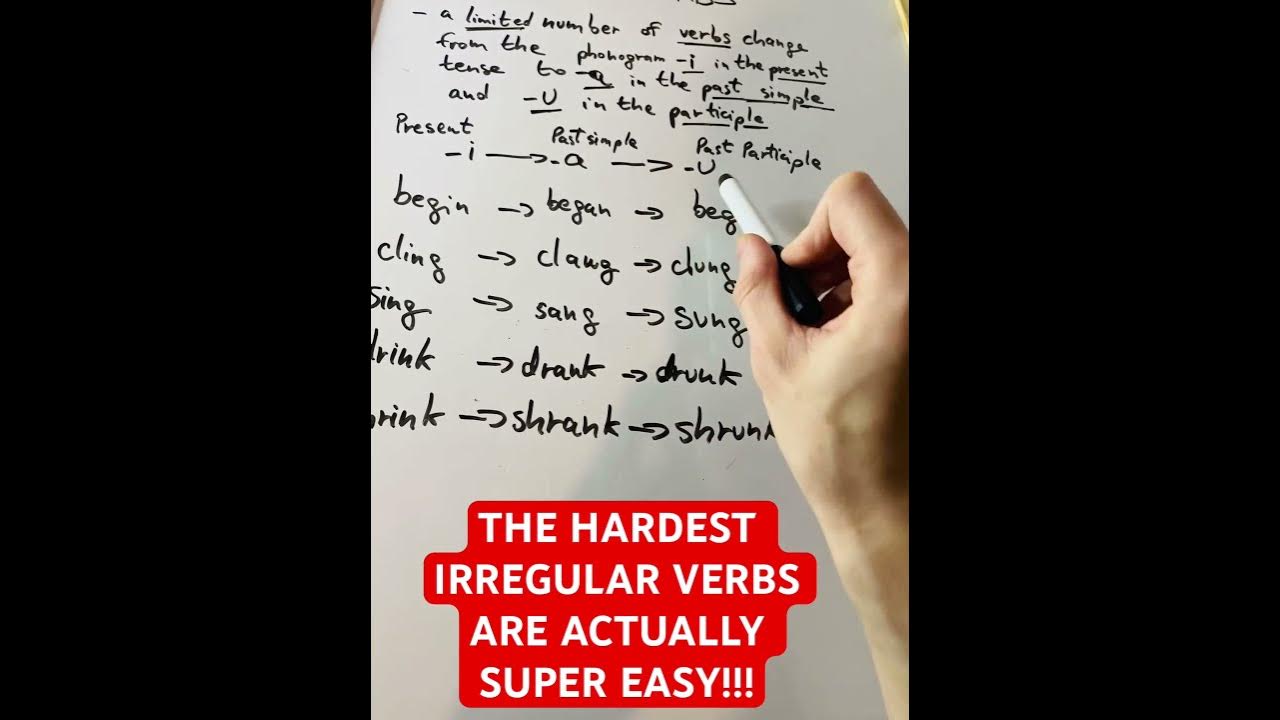 - a limited number of verbs change
from the phonogram -i in the present
tense to -a in the past simple
and -U in the participle
Present Past simple Past Participle
-i → -a → -U
begin → began → beg
cling → clang → clung
sing → sang → sung
drink → drank → drunk
hrink → shrank → shrunk
THE HARDEST
IRREGULAR VERBS
ARE ACTUALLY
SUPER EASY!!!